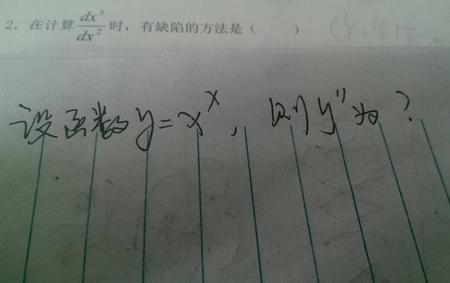 2. 在计算 dx³/dx² 时，有缺陷的方法是（ ）
设函数y=x^x, 则y''为?